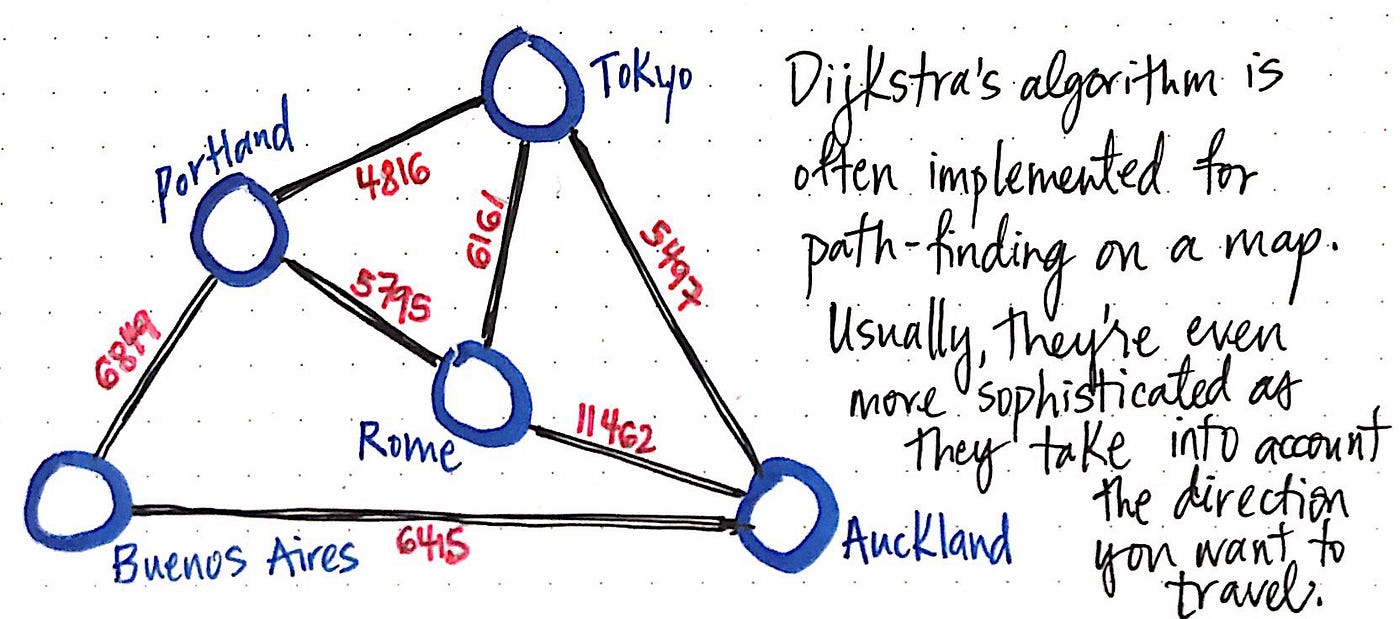 Tokyo
Portland
4816
6161
5497
5795
6849
Rome
11462
Buenos Aires
6415
Auckland
Dijkstra's algorithm is
often implemented for
path-finding on a map.
Usually, they're even
more sophisticated as
they take into account
the direction
you want to
travel.